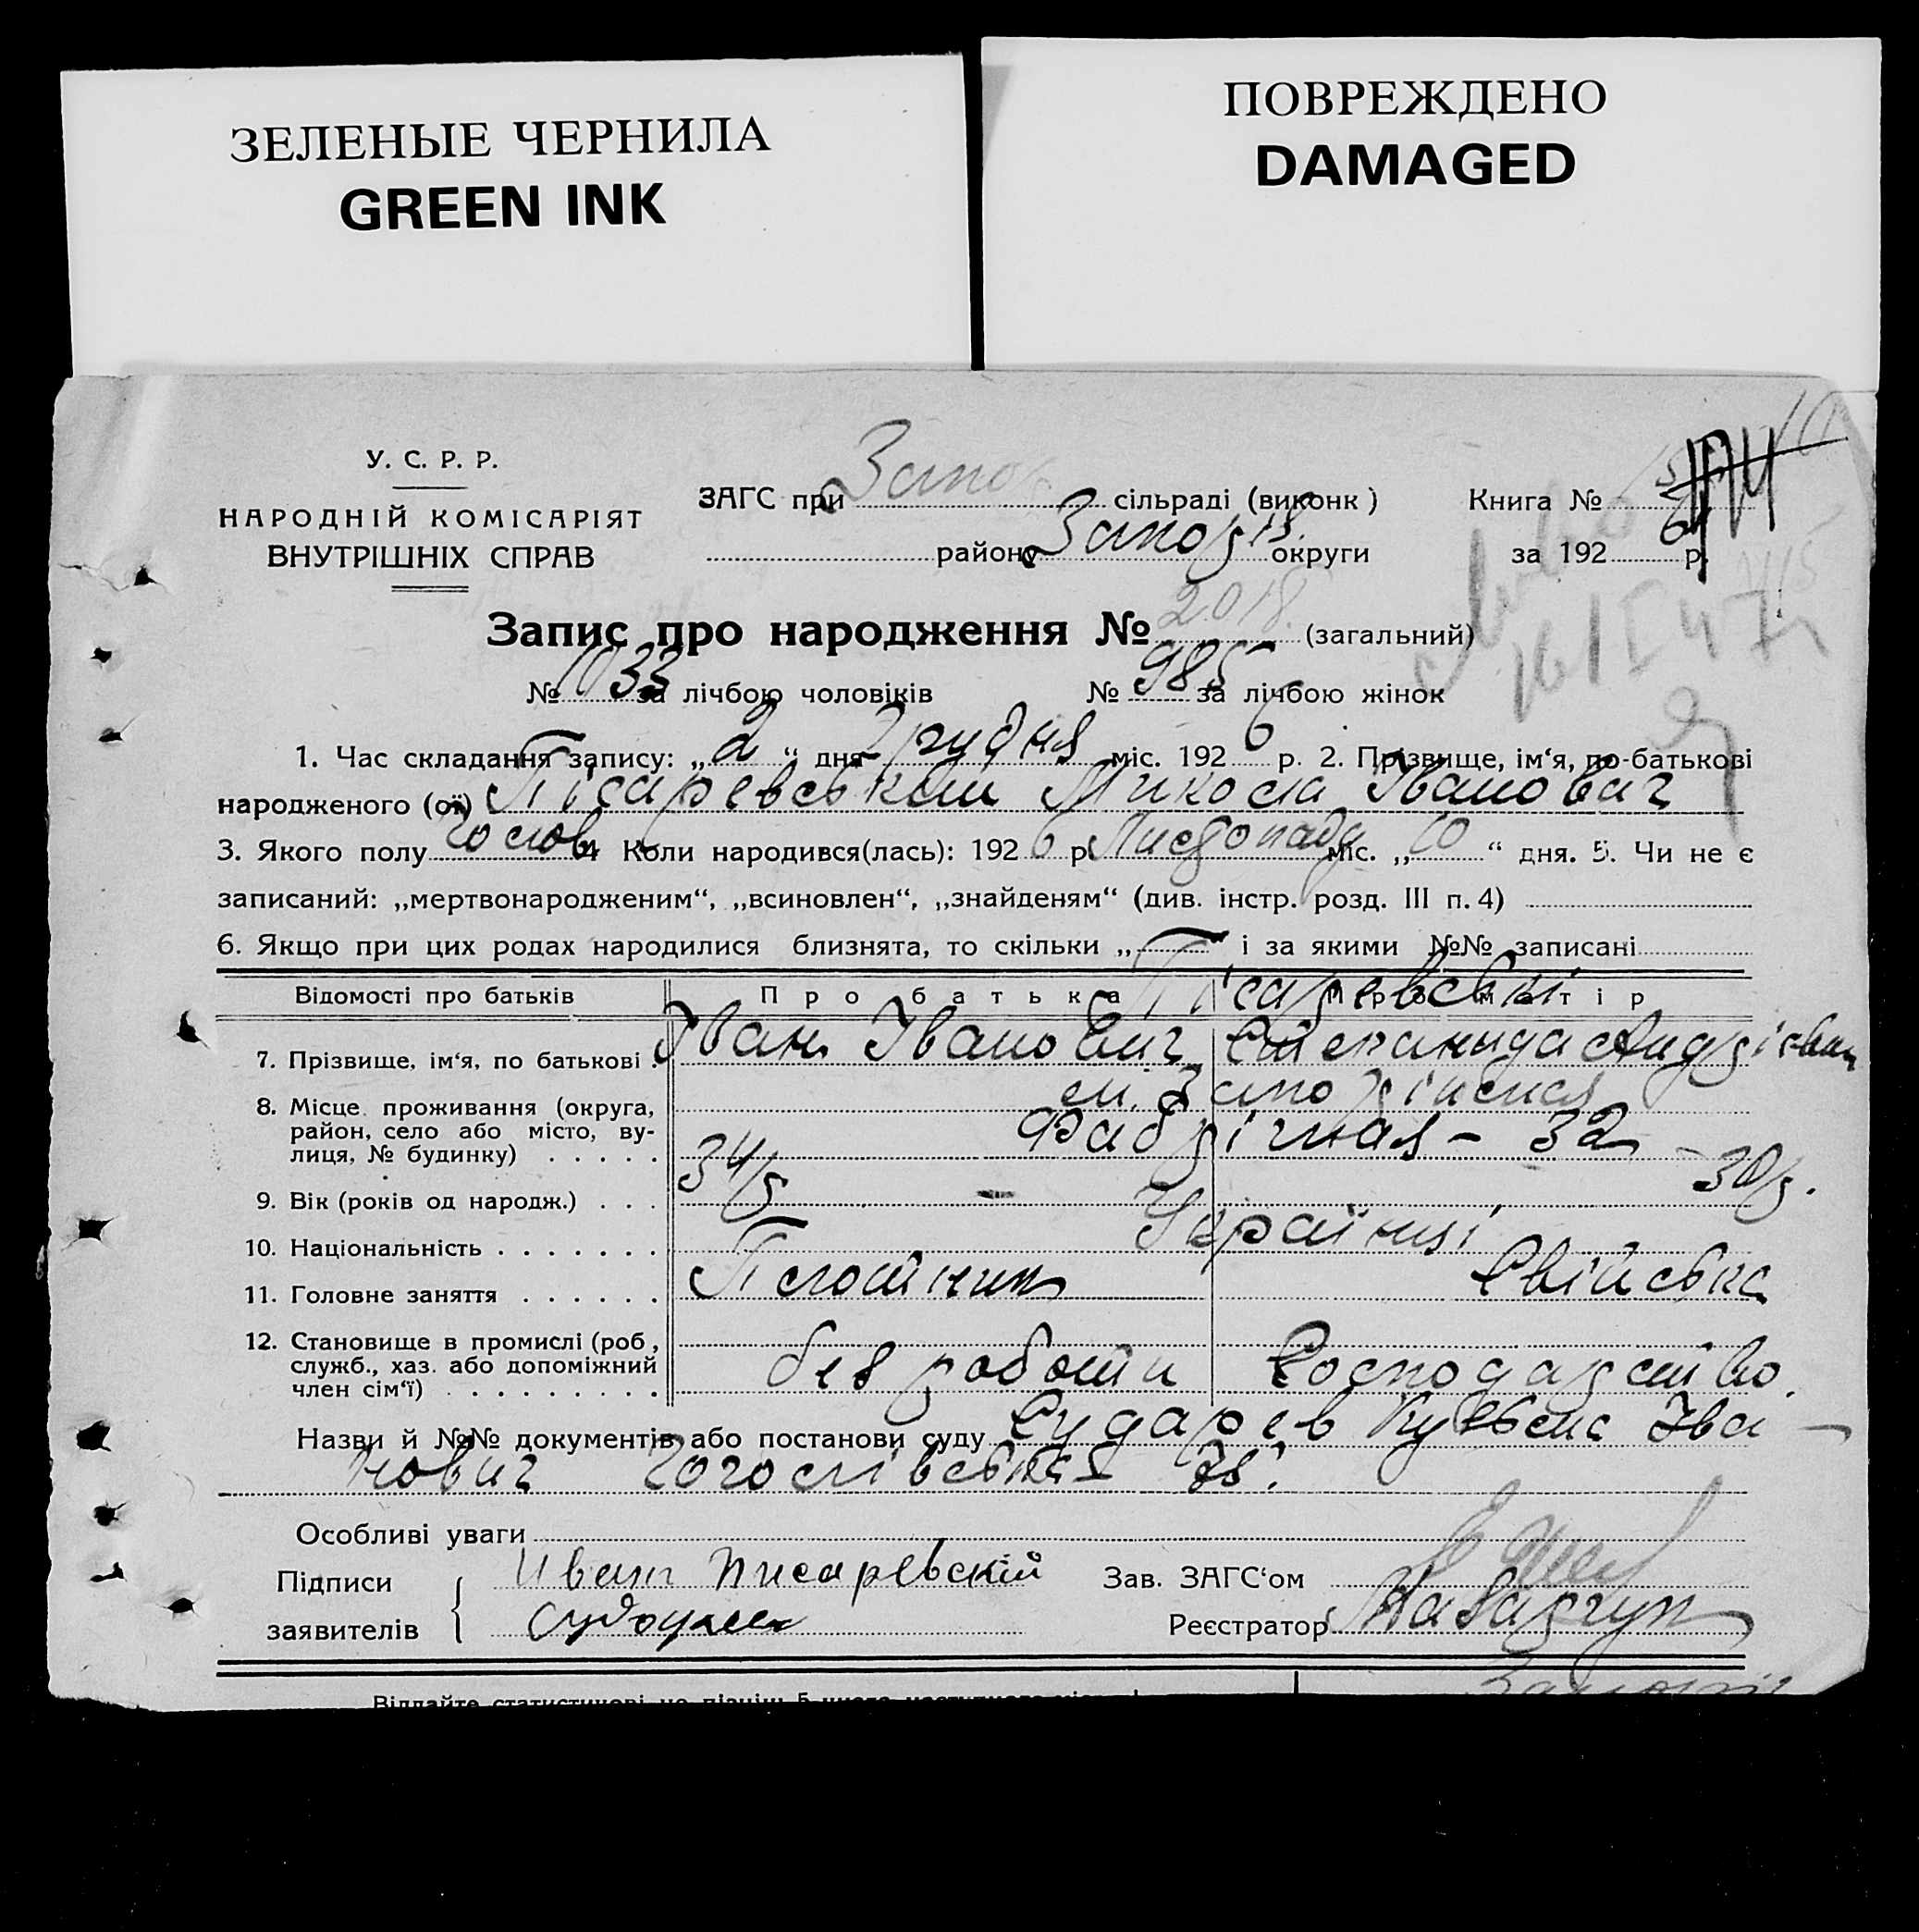 ЗЕЛЕНЫЕ ЧЕРНИЛА
GREEN INK
ПОВРЕЖДЕНО
DAMAGED
У. С. Р. Р.
НАРОДНІЙ КОМІСАРІЯТ
ВНУТРІШНІХ СПРАВ
ЗАГС при Запор сільраді (виконк)
району Запоріз. округи
Книга №
за 192 6 р.
Запис про народження № 2018. (загальний)
№ 1033 за лічбою чоловіків № 985 за лічбою жінок
1. Час складання запису: „2“ дня Грудня міс. 1926 р. 2. Прізвище, ім‘я, по-батькові
народженого (ої) Пісаревський Микола Іванович
3. Якого полу чолов. 4 Коли народився(лась): 1926 р Листопаду міс. „10“ дня. 5. Чи не є
записаний: „мертвонародженим“, „всиновлен“, „знайденям“ (див. інстр. розд. III п. 4)
6. Якщо при цих родах народилися близнята, то скільки „ і за якими №№ записані
Відомості про батьків Про батька Про матір
Пісаревські
7. Прізвище, ім‘я, по батькові . Іван Іванович Степанида Андріївна
8. Місце проживання (округа, район, село або місто, вулиця, № будинку) . . . . . м. Запоріжжя
Фабрічная - 32
9. Вік (років од народж.) . . . 34/5 - 30/5.
10. Національність . . . . . . . Українці
11. Головне заняття . . . . . . Плотник Свійська
12. Становище в промислі (роб, служб., хаз. або допоміжний член сім‘ї) . . . . . . . . . без роботи Господарство.
Назви й №№ документів або постанови суду Сударев Іва-
нович 78.
Особливі уваги
Підписи
заявителів
Иван Писаревскій
Зав. ЗАГС‘ом
Реєстратор
Віддайте статистикові не пізніш 5 числа наступного